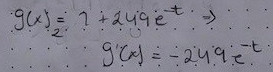 g(x) = 1 + 249 e^-t ⇒
2
g'(x) = -249 e^-t